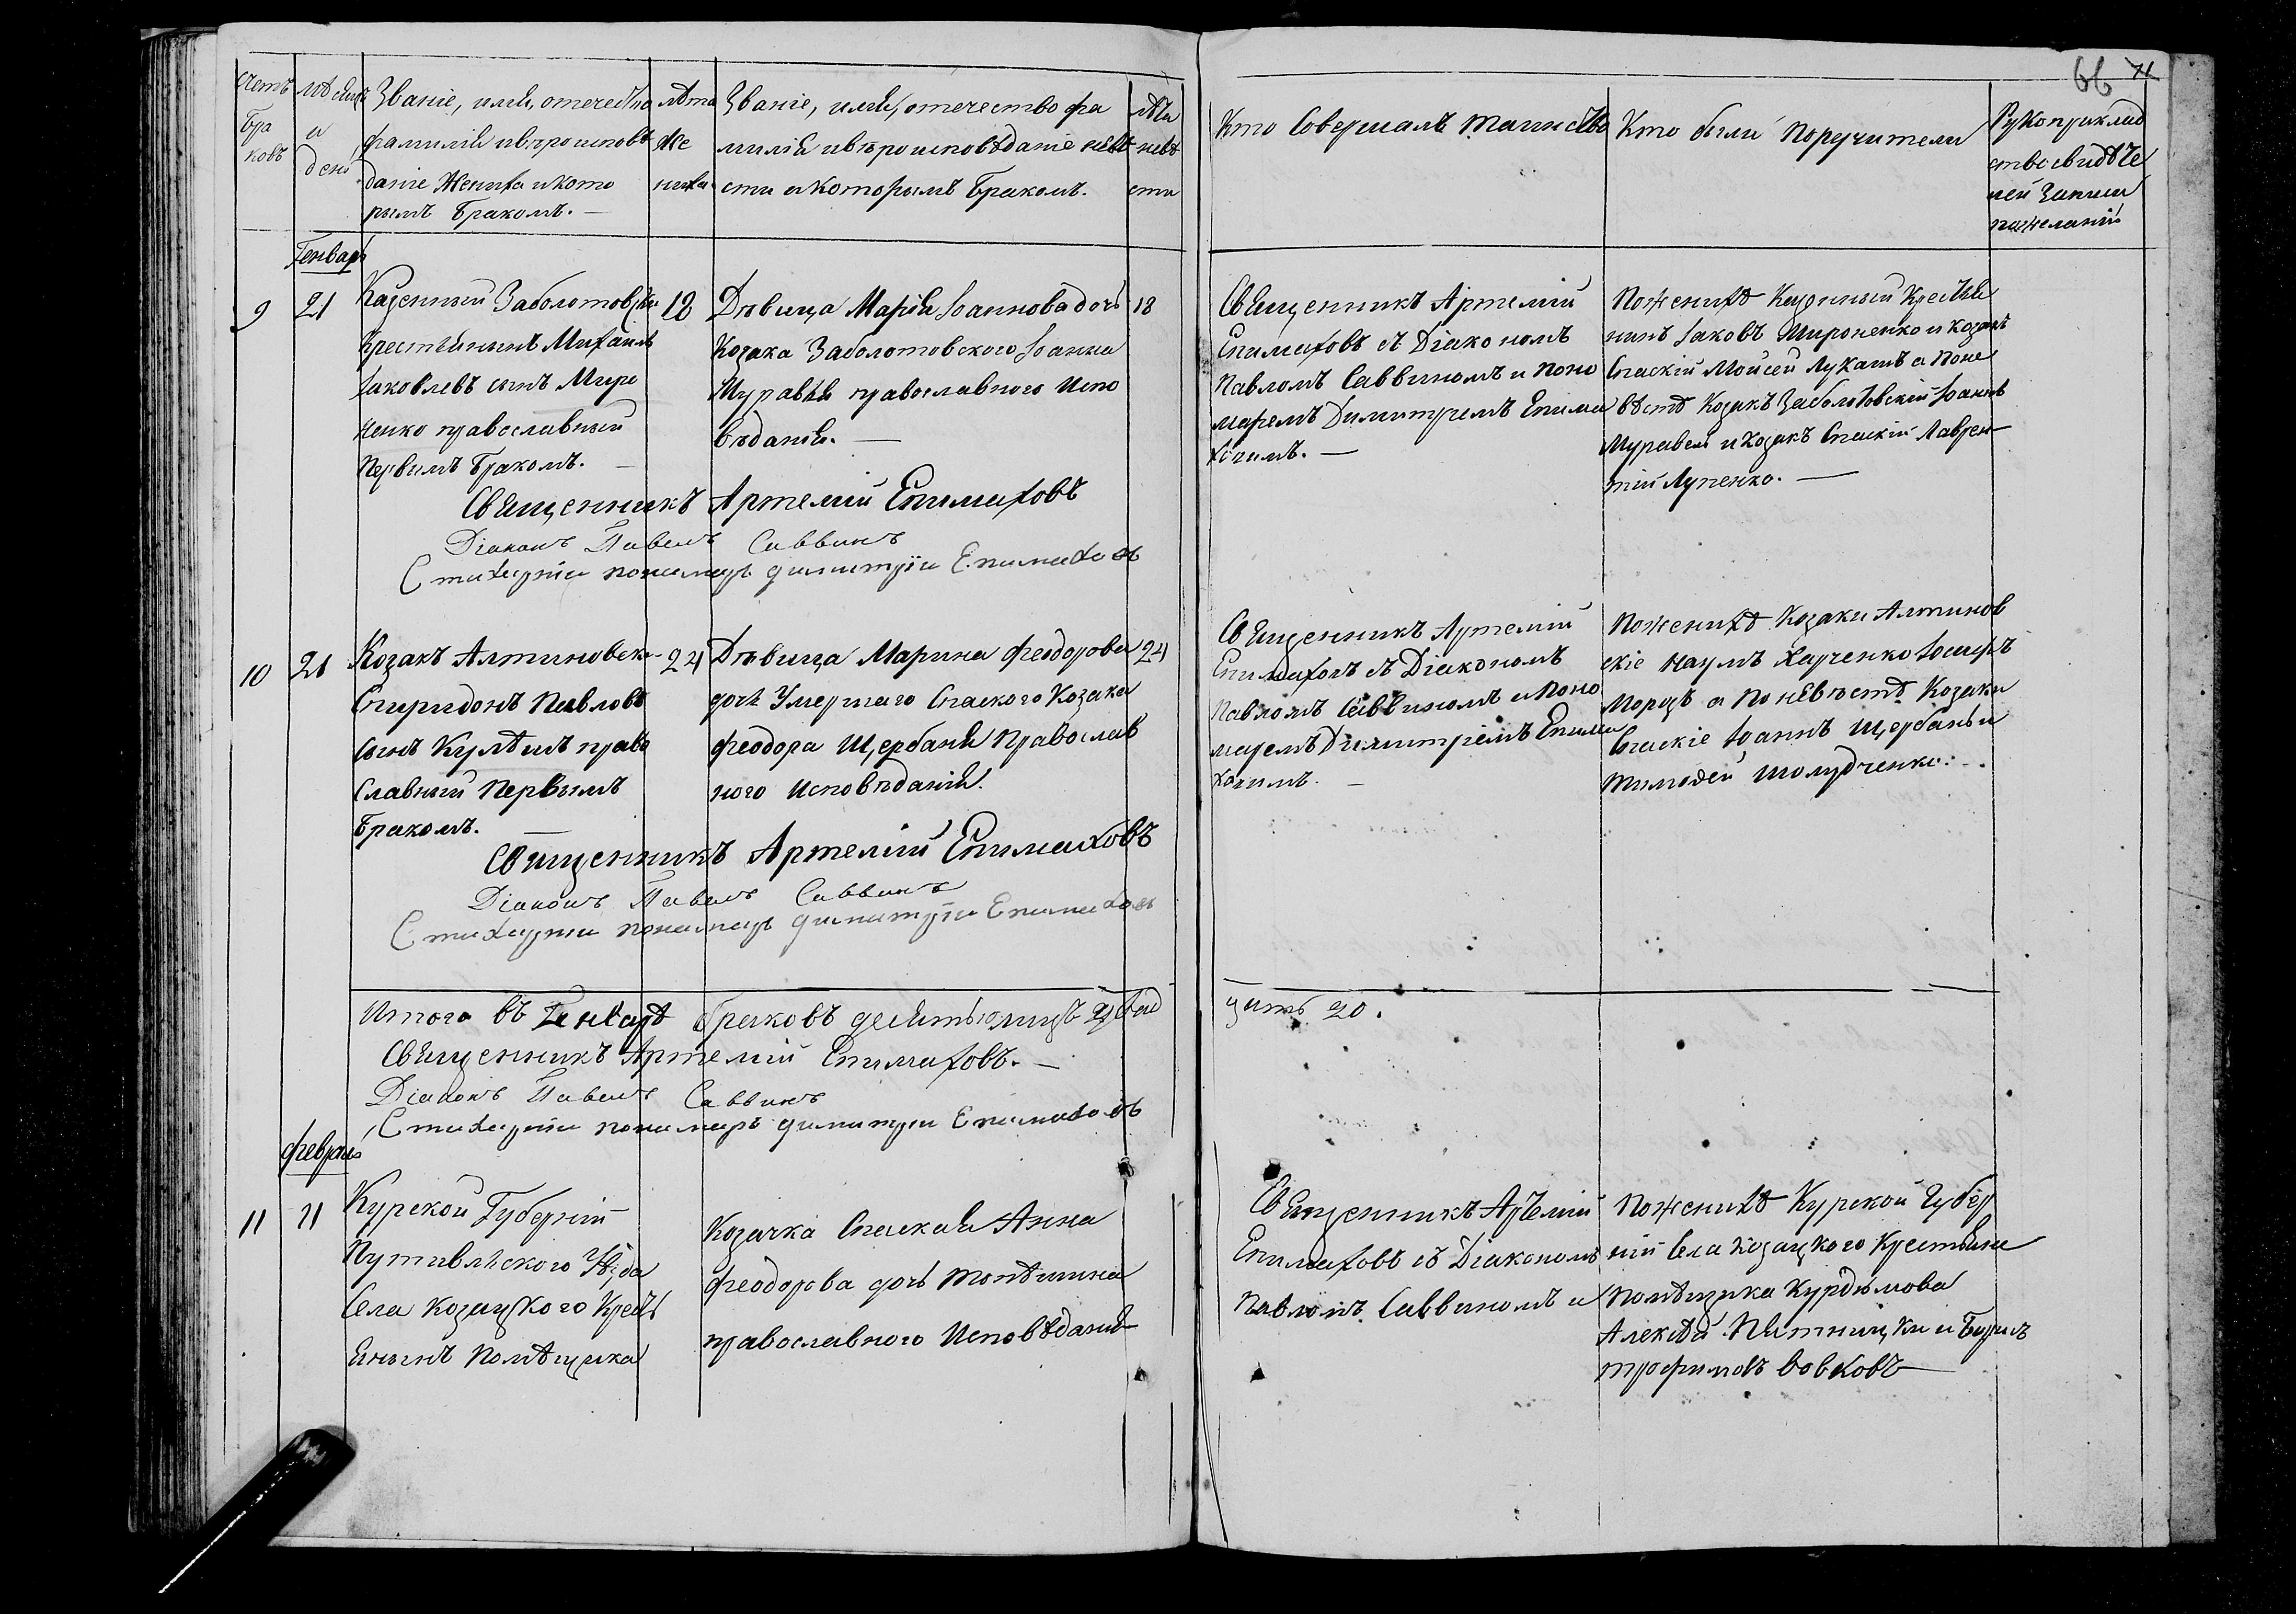 66
Счетъ Бра ковъ
мѣсяцъ и день
Званіе, имя, отечество
фамилія ивѣроисповѣ
даніе Жениха икото
рымъ бракомъ. —
лѣта
же
ниха
Званіе, имя, отечество фа
милія ивѣроисповѣданіе невѣ
сти икоторымъ бракомъ.
лѣта
невѣ
сти
Кто Совершалъ таинство
Кто были поручители
Рукоприклад
ство свидѣте
лей Записи
пожеланію
Генварь
9
21
Казенный Заболотовскій
Крестьянинъ Михаилъ
Іаковлевъ сынъ Миро
ненко православный
Первымъ бракомъ. —
18
Дѣвица Марія Іоаннова дочь
Козака Заболотовского Іоанна
Муравья православного Испо
вѣданія. —
18
Священникъ Артемій
Епимаховъ съ Діакономъ
Павломъ Саввиномъ и Поно
маремъ Димитріемъ Епима
ховимъ. —
Поженихѣ Казенный Крестья
нинъ Іаковъ Мироненко и козакъ
Спаскій Мойсей Лукашъ а поне
вѣстѣ Козакъ Заболотовскій Іоаннъ
Муравей и козакъ Спаскій Лаврен
тій Лупенко. —
Священникъ Артемій Епимаховъ
Діаконъ Павелъ Саввинъ
Стихарній пономарь димитрій Епимаховъ
10
21
Козакъ Алтиновскій
Спиридонъ Павловъ
сынъ Кулѣшъ право
Славный Первымъ
бракомъ.
24
Дѣвица Марина Феодорова
дочь Умершаго Спаского Козака
Феодора Щербаня Православ
ного Исповѣданія.
24
Священникъ Артемій
Епимаховъ съ Діакономъ
Павломъ Саввиномъ и Поно
маремъ Димитріемъ Епима
ховимъ. —
Поженихѣ Козаки Алтинов
скіе Наумъ Харченко Іосифъ
Морозъ а По невѣстѣ Козаки
Спаскіе Іоаннъ Щербань и
Тимофей Шолудченко.
Священникъ Артемій Епимаховъ
Діаконъ Павелъ Саввинъ
Стихарній пономарь димитрій Епимаховъ
Итого въ Генварѣ браковъ десять 10 лицъ двад
цить 20.
Священникъ Артемій Епимаховъ. —
Діаконъ Павелъ Саввинъ
Стихарній пономарь димитрій Епимаховъ
Февраль
11
11
Курской Губерніи
Путивльского Уѣзда
Села Козацкого Кресть
янинъ Помѣщика
Козачка Спаская Анна
Феодорова дочь
православного Исповѣданія
Священникъ Артемій
Епимаховъ съ Діакономъ
Павломъ Саввиномъ и
Поженихѣ Курской Губер
ніи Села Козацкого Крестьяне
Помѣщика Курдюмова
Алексѣй Пятницкій и
Трофимовъ Вовковъ